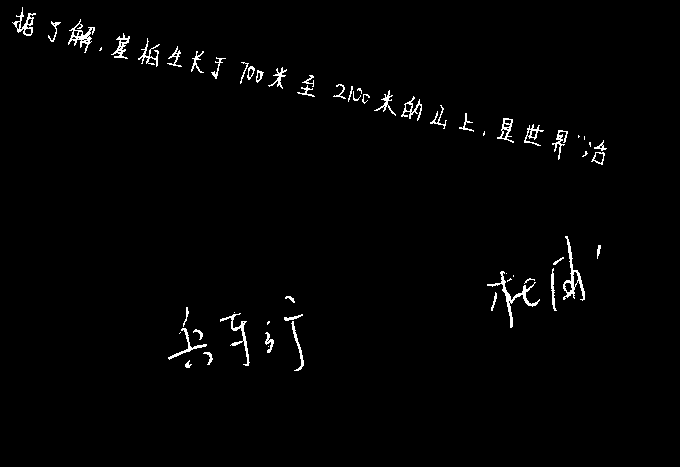 据了解，崖柏生长于700米至2100米的山上，是世界“活
杜甫
兵车行